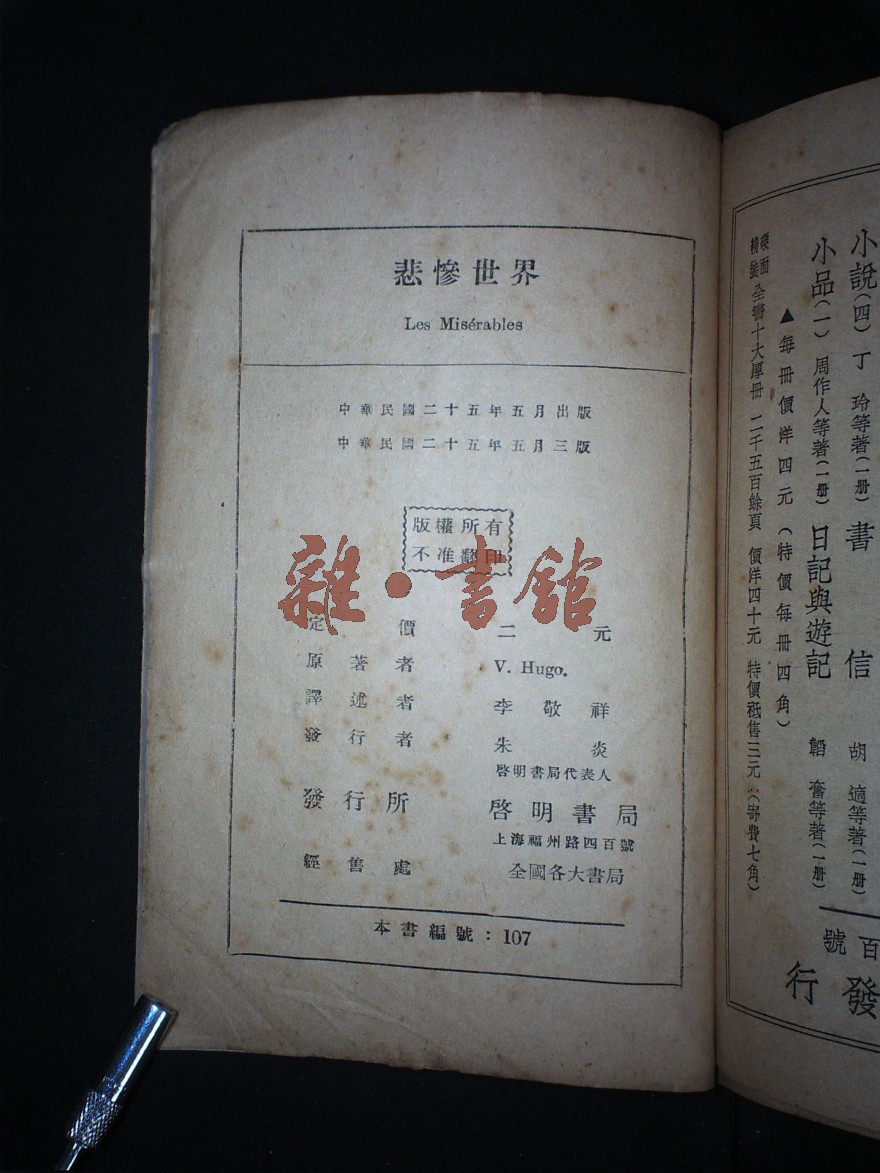 悲慘世界
Les Misérables
中華民國二十五年五月出版
中華民國二十五年五月三版
版權所有
不准翻印
雜·書舘
定價 二元
原著者 V. Hugo.
譯述者 李敬祥
發行者 朱炎
啓明書局代表人
發行所 啓明書局
上海福州路四百號
經售處 全國各大書局
本書編號：107
小說(四) 丁玲等著(一册) 書信 胡適等著(一册)
小品(一) 周作人等著(一册) 日記與遊記 韜奮等著(一册)
▲每冊價洋四元(特價每冊四角)
硬面精裝 全書十大厚冊 二千五百餘頁 價洋四十元 特價祗售三元(寄費七角)
百號
發行